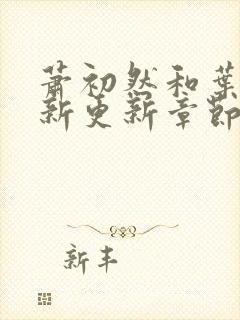 萧初然和葉
新更新章節
新丰